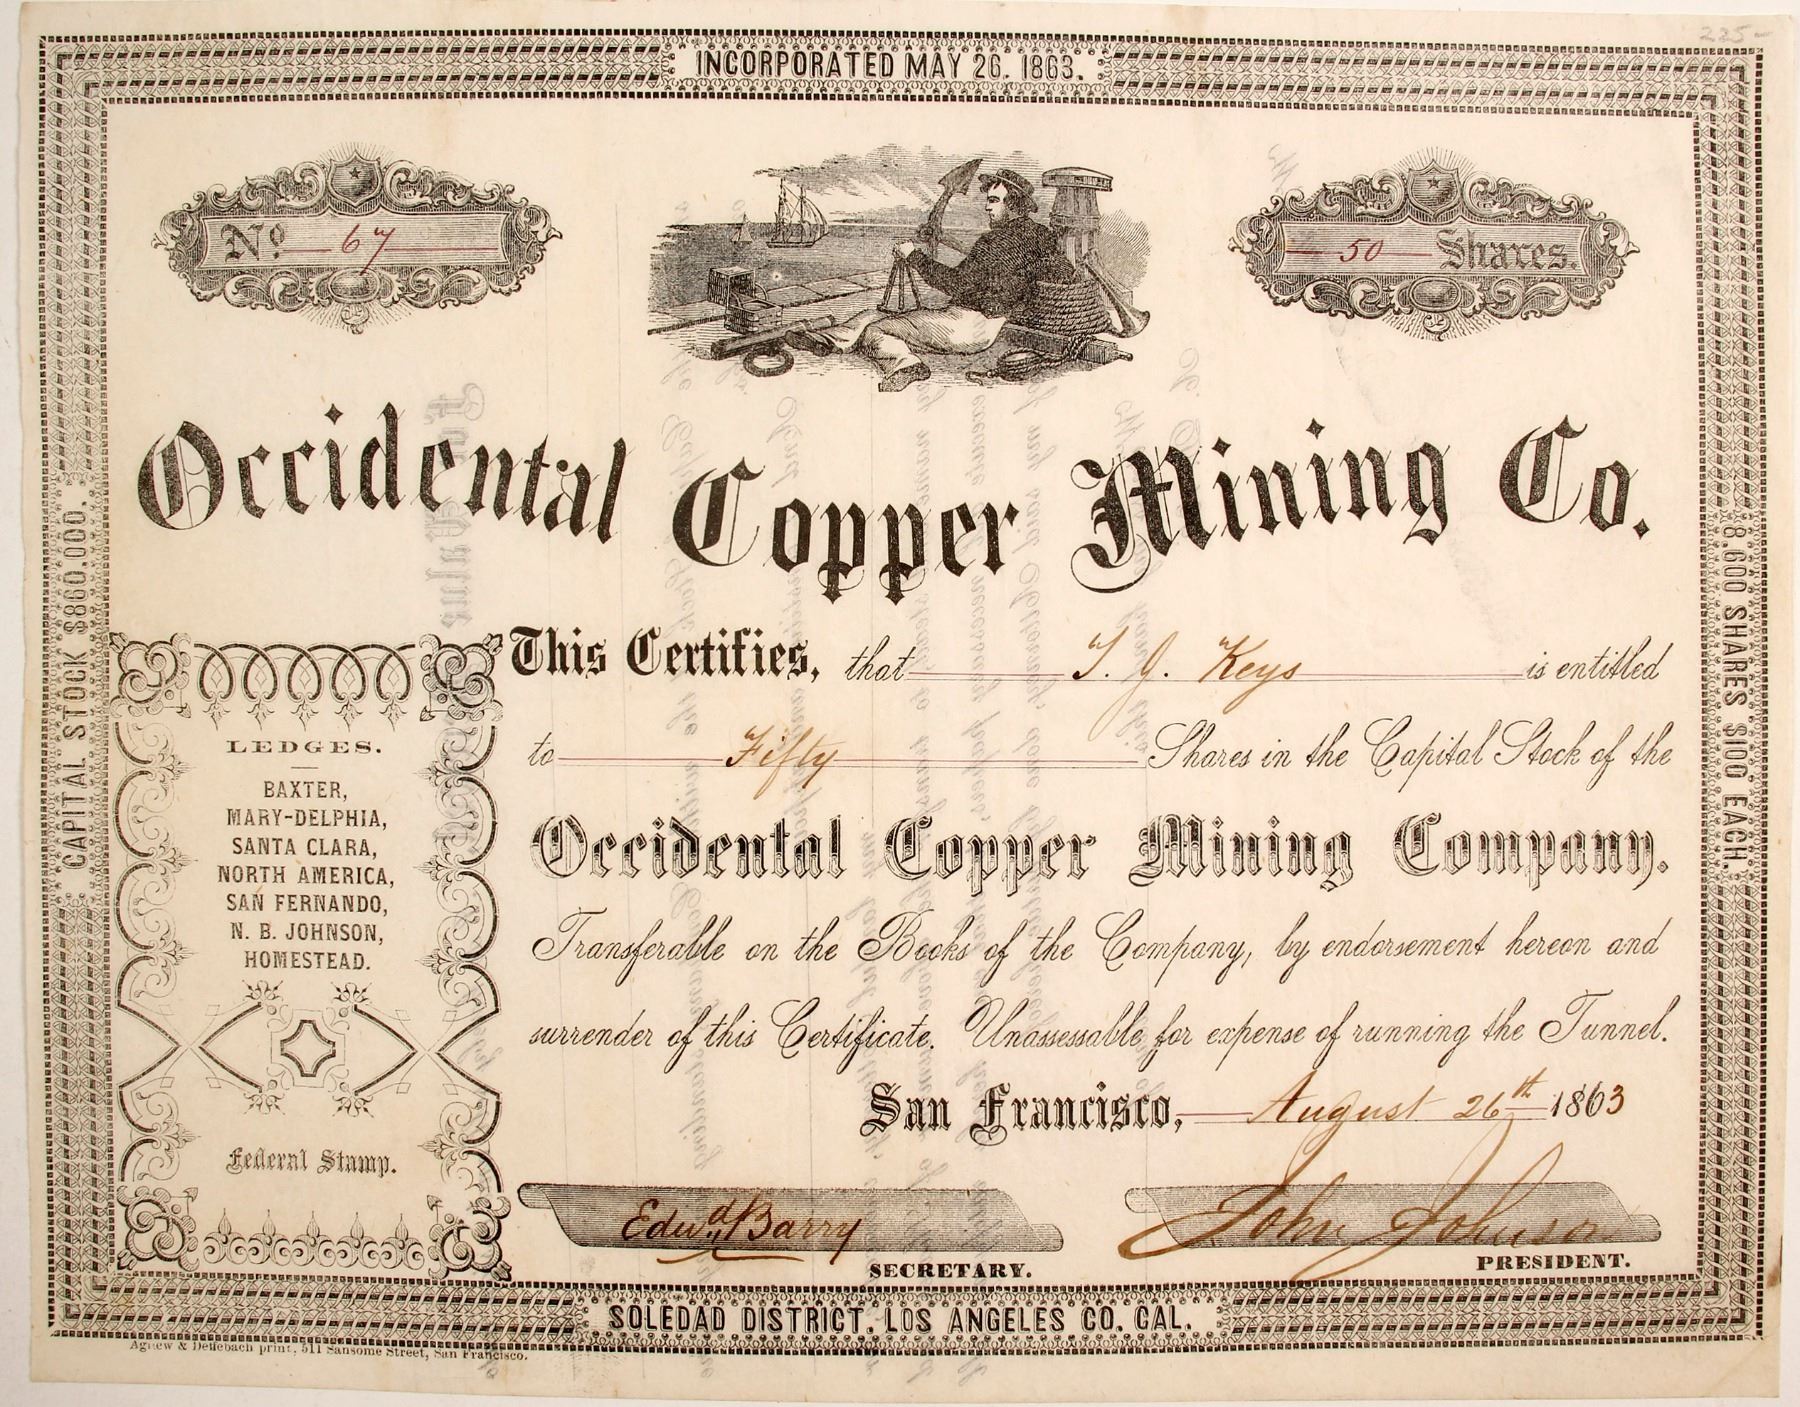 225
INCORPORATED MAY 26. 1863.
No. 67
50 Shares.
Occidental Copper Mining Co.
CAPITAL STOCK $860.000.
8.600 SHARES $100 EACH.
This Certifies, that T. J. Keys is entitled
to Fifty Shares in the Capital Stock of the
Occidental Copper Mining Company.
Transferable on the Books of the Company, by endorsement hereon and
surrender of this Certificate. Unassessable for expense of running the Tunnel.
San Francisco, August 26th 1863
LEDGES.
BAXTER,
MARY-DELPHIA,
SANTA CLARA,
NORTH AMERICA,
SAN FERNANDO,
N. B. JOHNSON,
HOMESTEAD.
Federal Stamp.
Edwd Barry
SECRETARY.
John Johnson
PRESIDENT.
SOLEDAD DISTRICT, LOS ANGELES CO. CAL.
Agnew & Deffebach print, 511 Sansome Street, San Francisco.